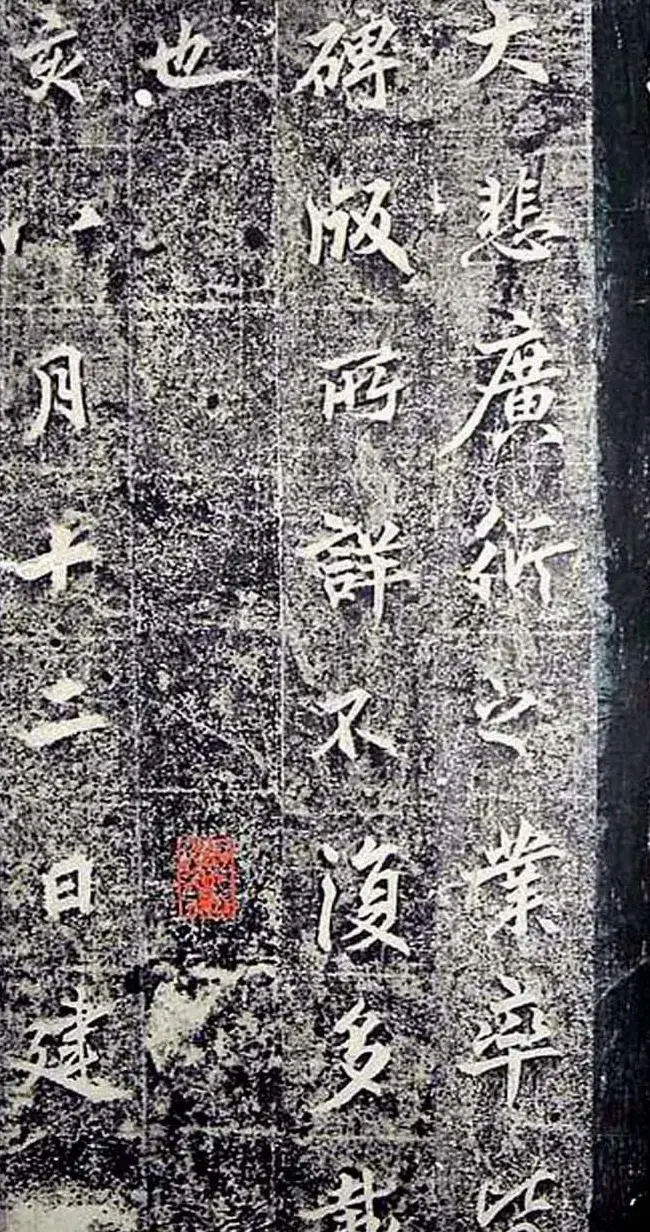 大悲廣衍之業卒皆
磚版所詳不復多載
也
亥八月十二日建